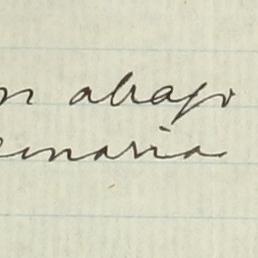 n abajo
enaria